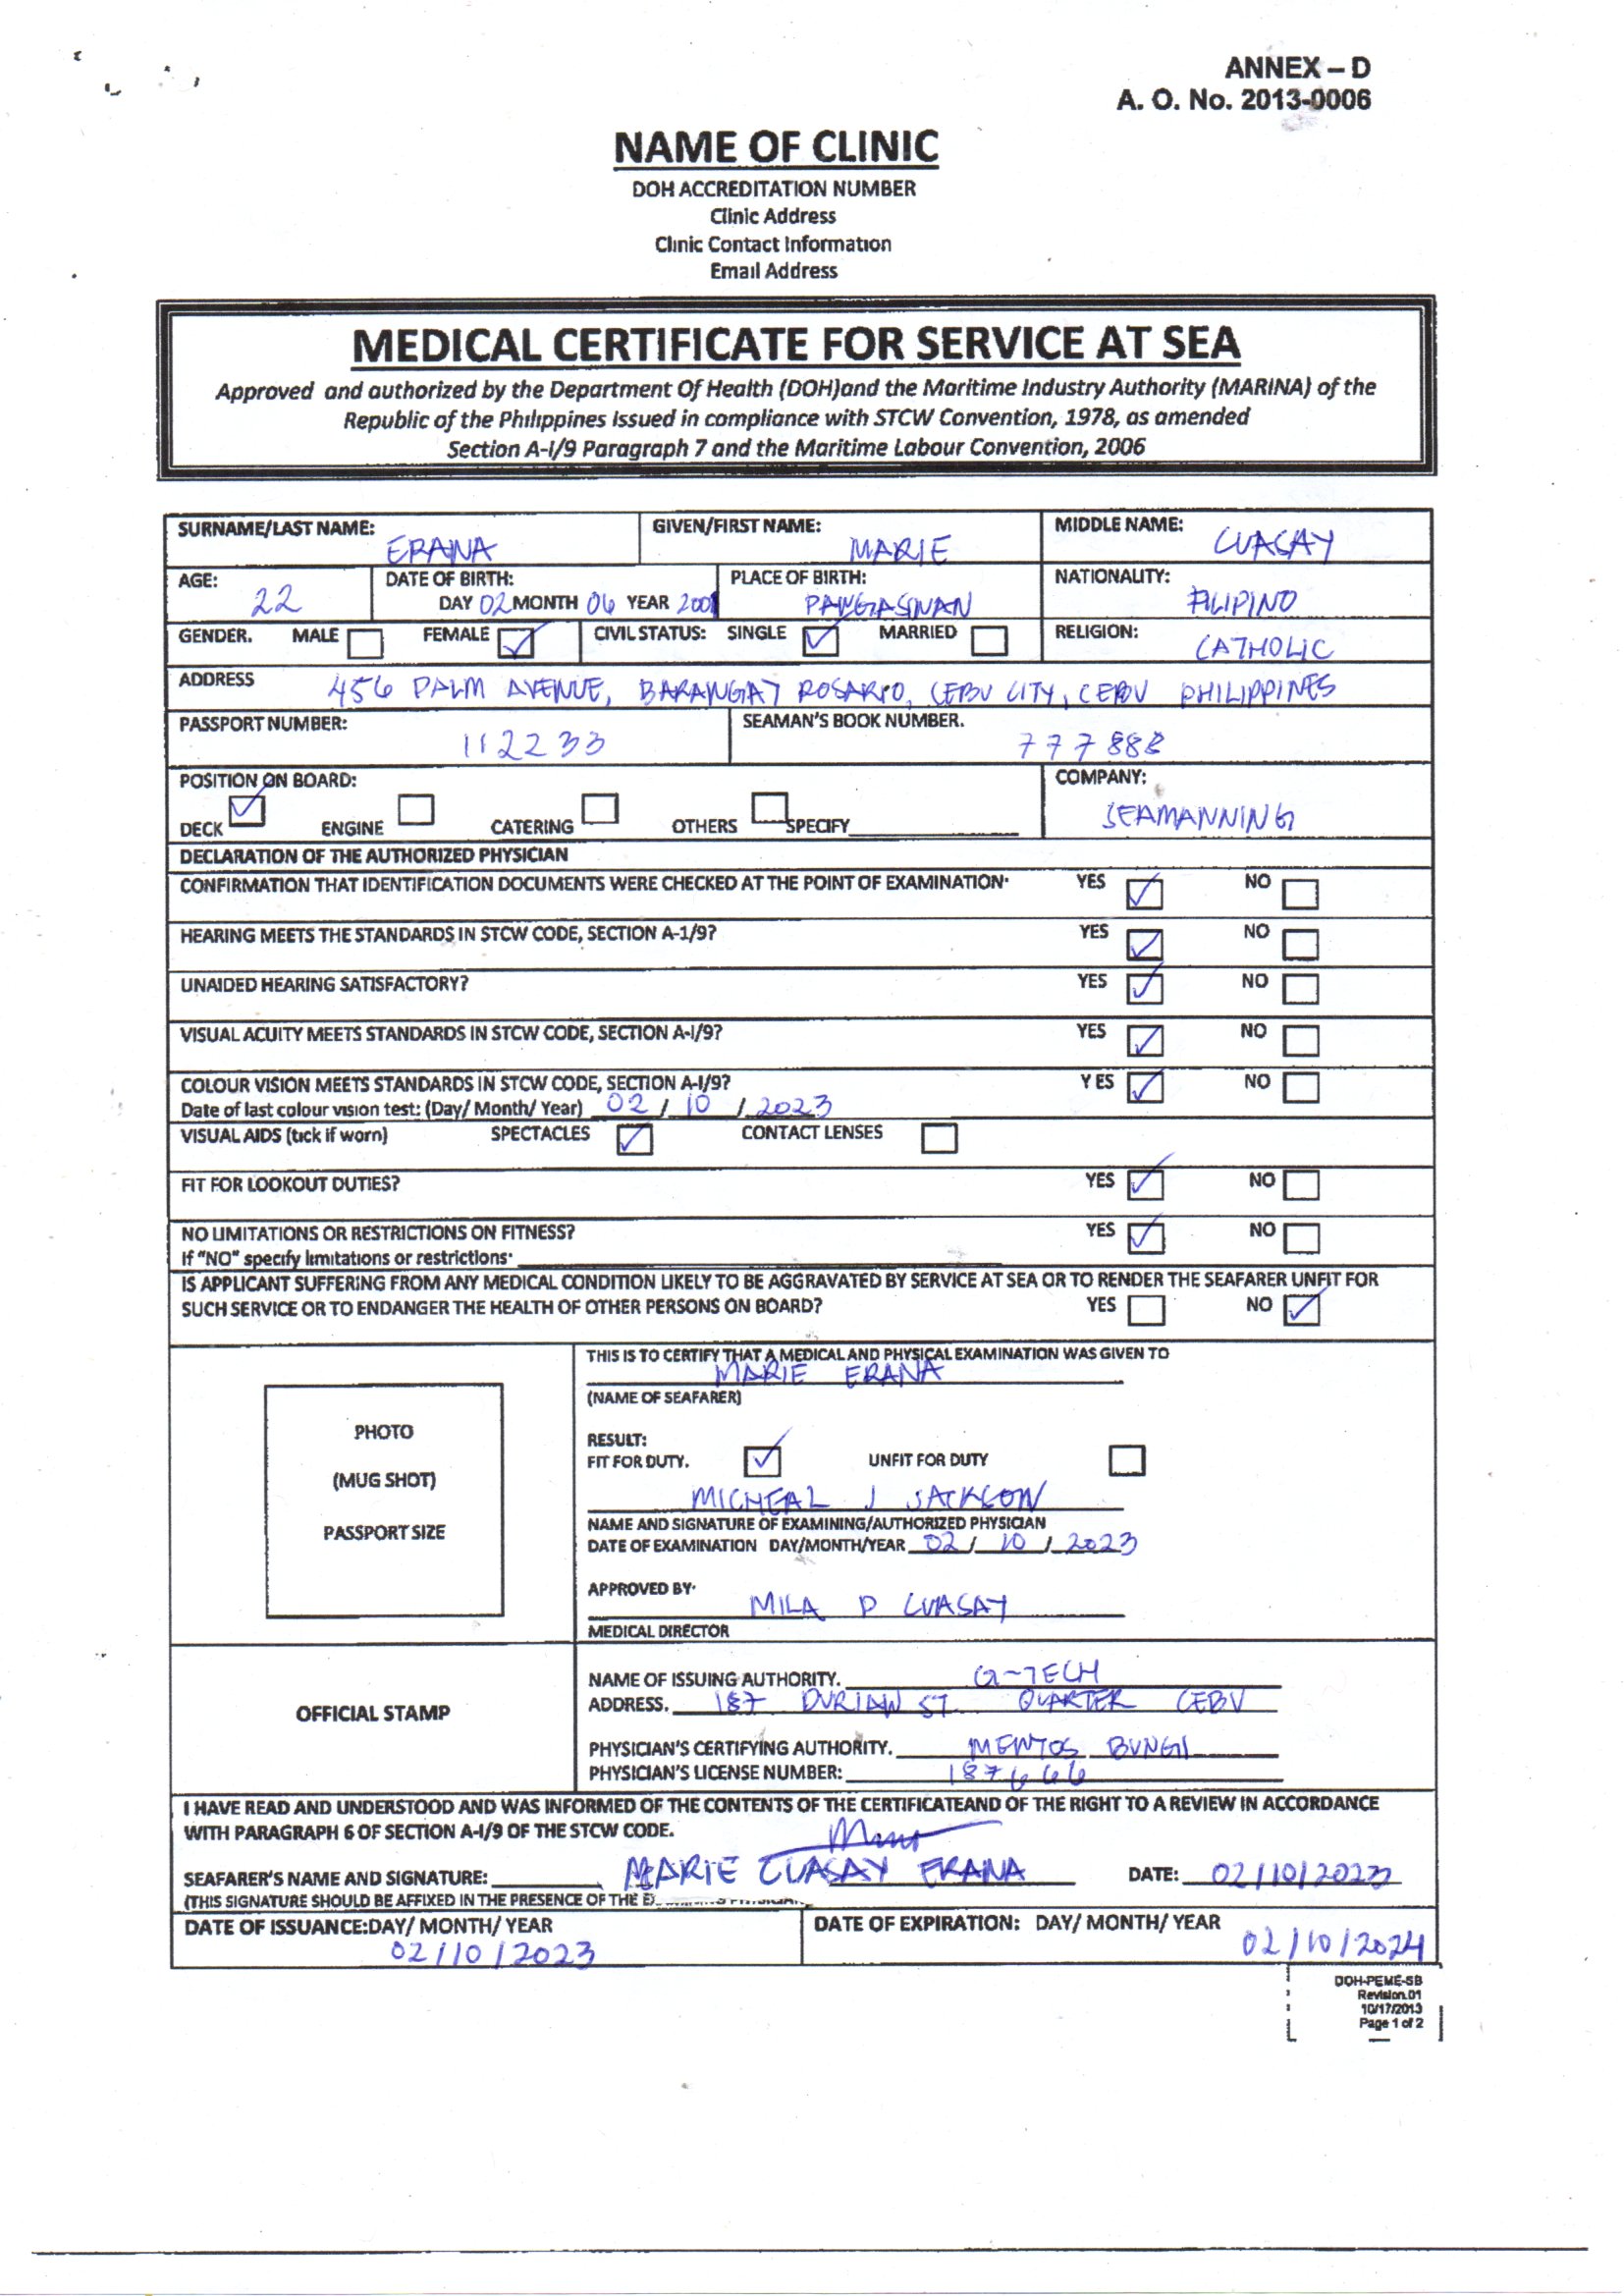 ANNEX – D
A. O. No. 2013-0006
NAME OF CLINIC
DOH ACCREDITATION NUMBER
Clinic Address
Clinic Contact Information
Email Address
MEDICAL CERTIFICATE FOR SERVICE AT SEA
Approved and authorized by the Department Of Health (DOH)and the Maritime Industry Authority (MARINA) of the
Republic of the Philippines Issued in compliance with STCW Convention, 1978, as amended
Section A-I/9 Paragraph 7 and the Maritime Labour Convention, 2006
SURNAME/LAST NAME: ERANA GIVEN/FIRST NAME: MARIE MIDDLE NAME: CUASAY
AGE: 22 DATE OF BIRTH: DAY 02 MONTH 06 YEAR 2001 PLACE OF BIRTH: PANGASINAN NATIONALITY: FILIPINO
GENDER. MALE FEMALE CIVIL STATUS: SINGLE MARRIED RELIGION: CATHOLIC
ADDRESS 456 PALM AVENUE, BARANGAY ROSARIO, CEBU CITY, CEBU PHILIPPINES
PASSPORT NUMBER: 112233 SEAMAN'S BOOK NUMBER. 777888
POSITION ON BOARD: COMPANY: SEAMANNING
DECK ENGINE CATERING OTHERS SPECIFY
DECLARATION OF THE AUTHORIZED PHYSICIAN
CONFIRMATION THAT IDENTIFICATION DOCUMENTS WERE CHECKED AT THE POINT OF EXAMINATION· YES NO
HEARING MEETS THE STANDARDS IN STCW CODE, SECTION A-1/9? YES NO
UNAIDED HEARING SATISFACTORY? YES NO
VISUAL ACUITY MEETS STANDARDS IN STCW CODE, SECTION A-I/9? YES NO
COLOUR VISION MEETS STANDARDS IN STCW CODE, SECTION A-I/9? YES NO
Date of last colour vision test: (Day/ Month/ Year) 02 / 10 / 2023
VISUAL AIDS (tick if worn) SPECTACLES CONTACT LENSES
FIT FOR LOOKOUT DUTIES? YES NO
NO LIMITATIONS OR RESTRICTIONS ON FITNESS? YES NO
If "NO" specify limitations or restrictions·
IS APPLICANT SUFFERING FROM ANY MEDICAL CONDITION LIKELY TO BE AGGRAVATED BY SERVICE AT SEA OR TO RENDER THE SEAFARER UNFIT FOR
SUCH SERVICE OR TO ENDANGER THE HEALTH OF OTHER PERSONS ON BOARD? YES NO
PHOTO
(MUG SHOT)
PASSPORT SIZE
THIS IS TO CERTIFY THAT A MEDICAL AND PHYSICAL EXAMINATION WAS GIVEN TO
MARIE ERANA
(NAME OF SEAFARER)
RESULT:
FIT FOR DUTY. UNFIT FOR DUTY
MICHEAL J JACKSON
NAME AND SIGNATURE OF EXAMINING/AUTHORIZED PHYSICIAN
DATE OF EXAMINATION DAY/MONTH/YEAR 02 / 10 / 2023
APPROVED BY·
MILA P CUASAY
MEDICAL DIRECTOR
OFFICIAL STAMP
NAME OF ISSUING AUTHORITY. G-TECH
ADDRESS. 187 DURIAN ST. QUARTER CEBU
PHYSICIAN'S CERTIFYING AUTHORITY. MENTOS BUNGI
PHYSICIAN'S LICENSE NUMBER: 187666
I HAVE READ AND UNDERSTOOD AND WAS INFORMED OF THE CONTENTS OF THE CERTIFICATEAND OF THE RIGHT TO A REVIEW IN ACCORDANCE
WITH PARAGRAPH 6 OF SECTION A-I/9 OF THE STCW CODE.
SEAFARER'S NAME AND SIGNATURE: MARIE CUASAY ERANA DATE: 02/10/2023
(THIS SIGNATURE SHOULD BE AFFIXED IN THE PRESENCE OF THE
DATE OF ISSUANCE:DAY/ MONTH/ YEAR DATE OF EXPIRATION: DAY/ MONTH/ YEAR
02/10/2023 02/10/2024
DOH-PEME-SB
Revision.01
10/17/2013
Page 1 of 2